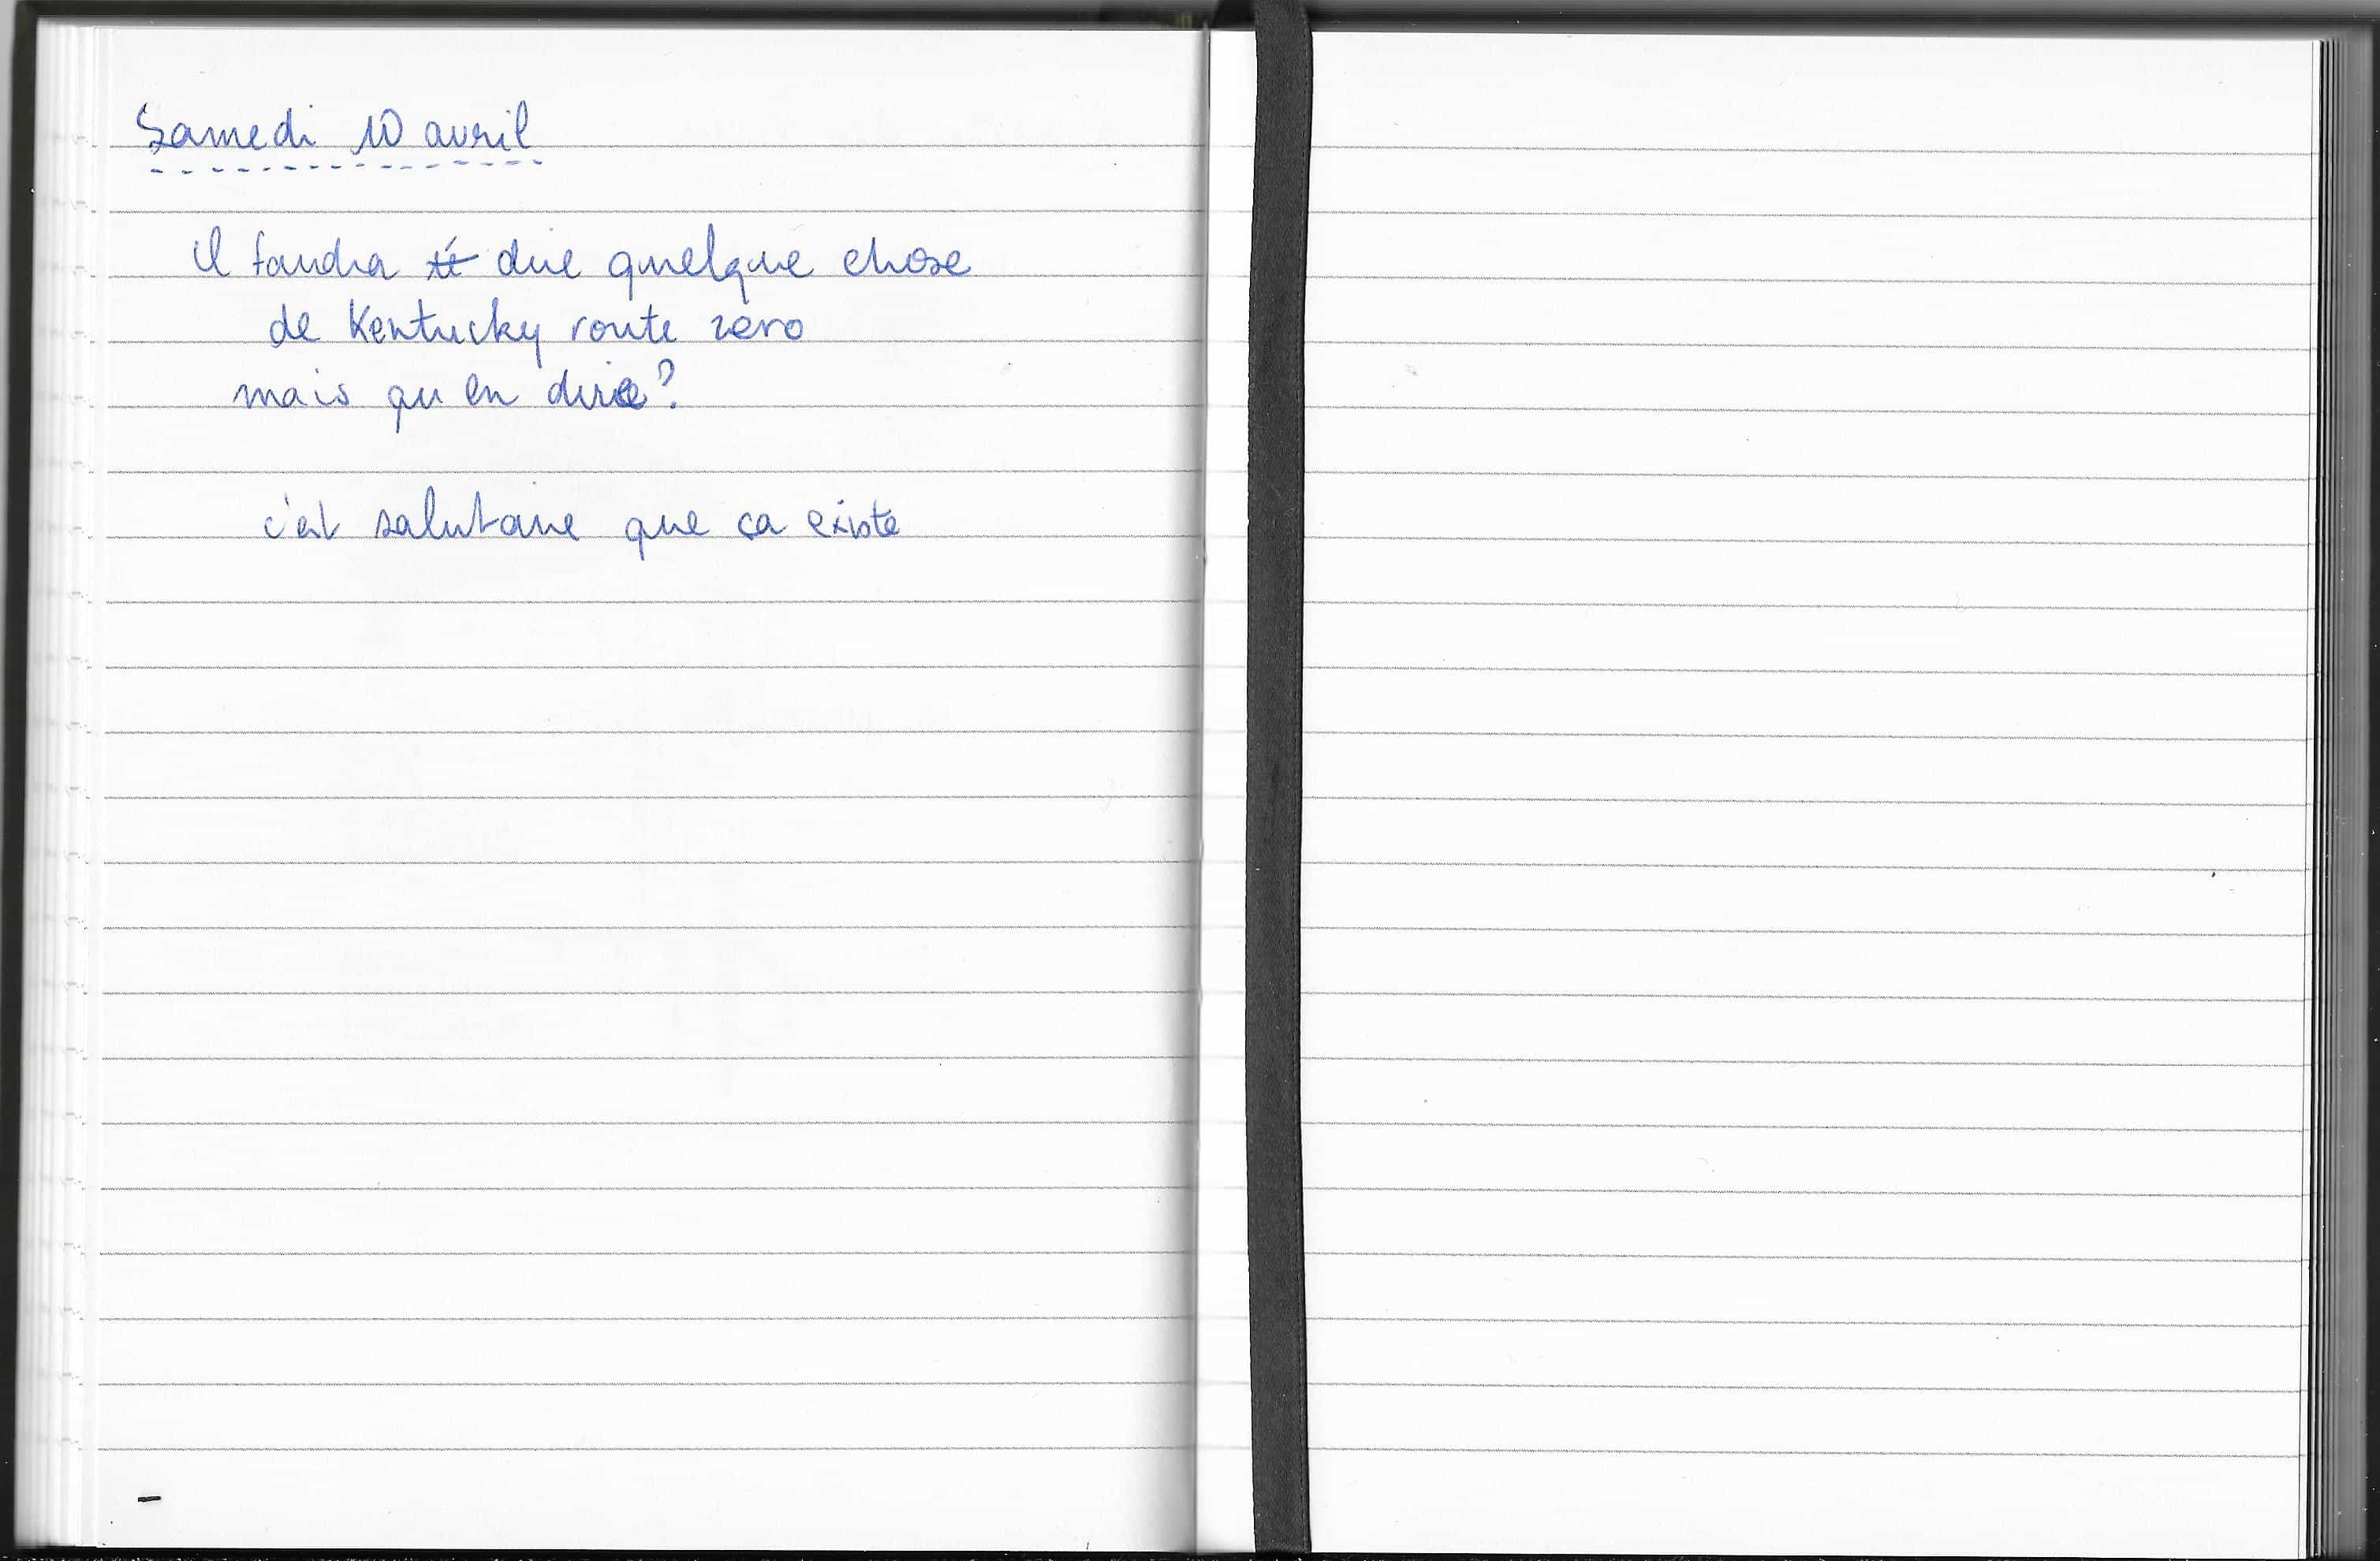 Samedi 10 avril
il faudra dire quelque chose
de Kentucky route zero
mais qu'en dire?
c'est salutaire que ça existe